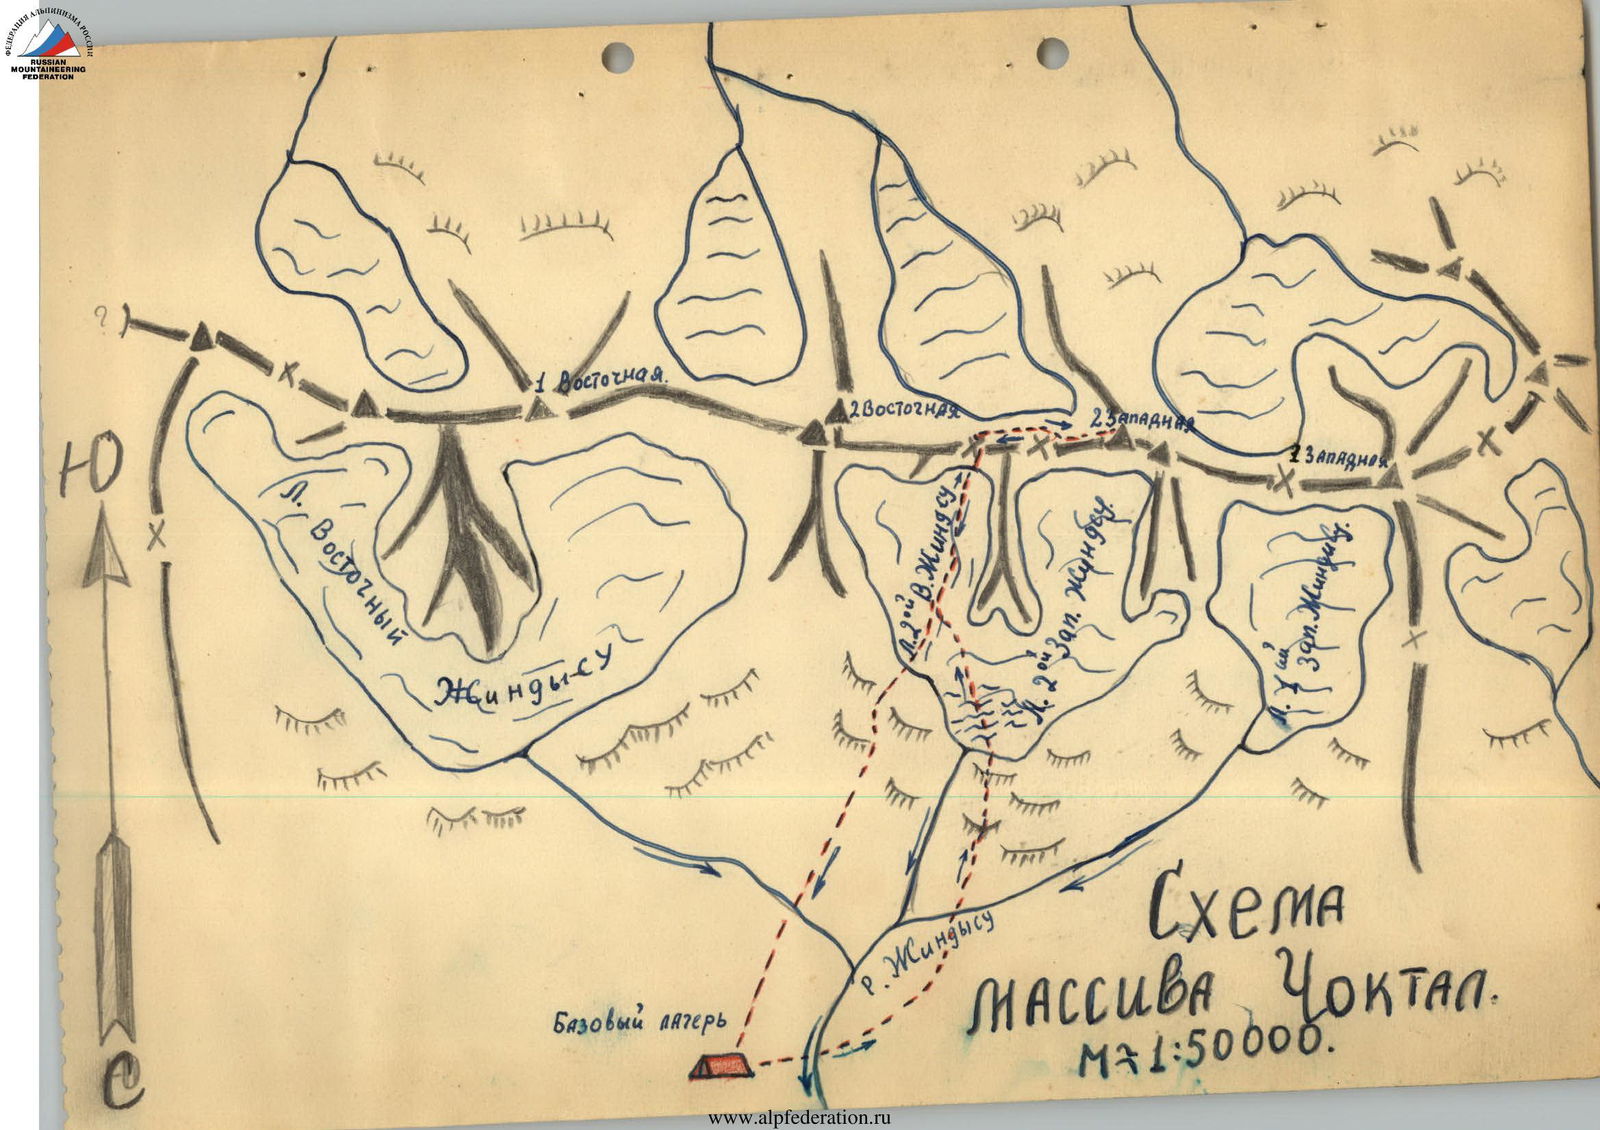 ФЕДЕРАЦИЯ АЛЬПИНИЗМА РОССИИ
RUSSIAN
MOUNTAINEERING
FEDERATION
?
1 Восточная.
2 Восточная
2 Западная
1 Западная
Ю
Л. Восточный
Жинды-су
Л. 2ой В. Жиндысу
Л. 2ой Зап. Жиндысу.
Л. 1ый Зап. Жиндысу.
р. Жиндысу
Базовый лагерь
Схема
массива Чоктал.
М≈1:50000.
С
www.alpfederation.ru